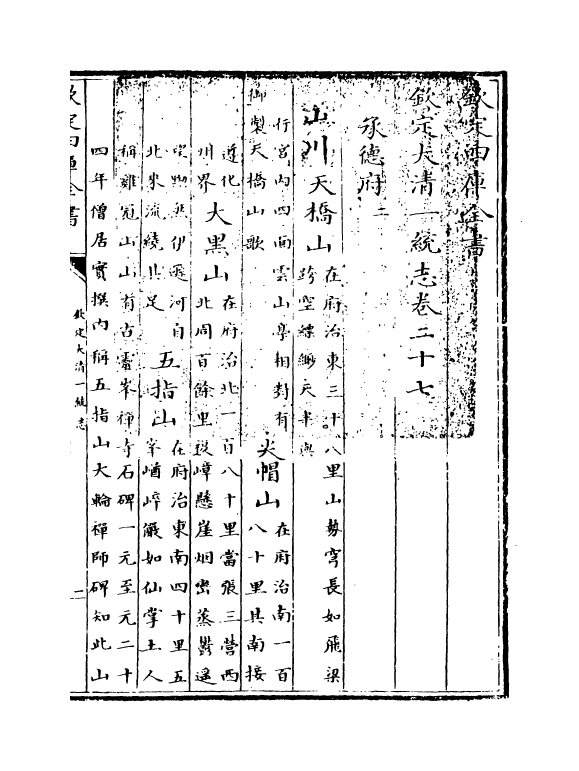 欽定四庫全書
欽定大清一統志卷二十七
承德府二
山川 天橋山 在府治東三十八里山勢穹長如飛梁
跨空縹緲天半與
行宮内四面雲山亭相對有
御製天橋山歌 尖帽山 在府治南一百
八十里其南接
遵化
州界 大黑山 在府治北一百八十里當張三營西
北周百餘里嶂懸崖烟巒蒸鬱遥
望伊遜河自
北來流繞其足 五指山 在府治東南四十里五
峯崷崪儼如仙掌土人
稱雞冠山山有古靈峯禪寺石碑一元至元二十
四年僧居實撰内稱五指山大輪禪師碑知此山
欽定四庫全書
欽定大清一統志
一